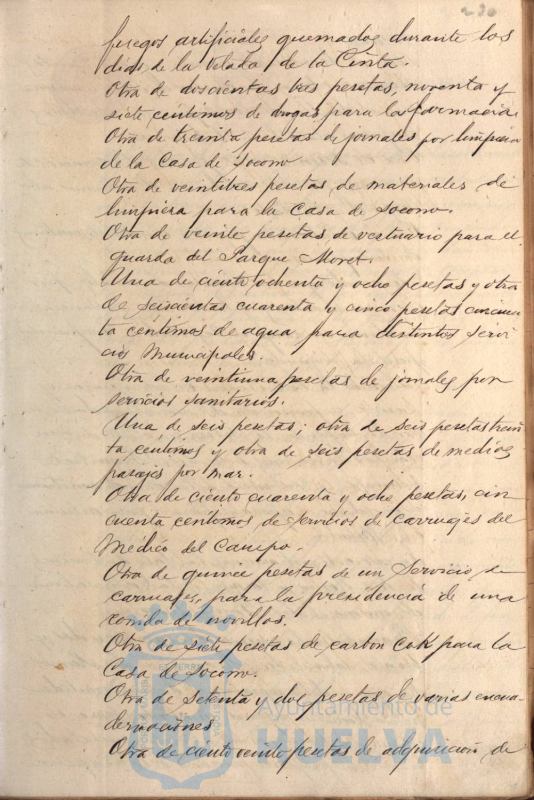 230
fuegos artificiales quemados durante los
dias de la velada de la Cinta.
Otra de doscientas tres pesetas, noventa y
siete centimos de drogas para la farmacia.
Otra de treinta pesetas de jornales por limpieza
de la Casa de Socorro
Otra de veintitres pesetas de materiales de
limpieza para la Casa de Socorro.
Otra de veinte pesetas de vestuario para el
guarda del Parque Moret.
Una de ciento ochenta y ocho pesetas y otra
de seiscientas cuarenta y cinco pesetas cincuen
ta centimos de agua para distintos servi
cios Municipales.
Otra de veintiuna pesetas de jornales por
servicios sanitarios.
Una de seis pesetas; otra de seis pesetas trein
ta centimos y otra de seis pesetas de medios
pasajes por mar.
Otra de ciento cuarenta y ocho pesetas, cin
cuenta centimos de servicios de carruajes del
Medico del Campo.
Otra de quince pesetas de un servicio de
carruajes, para la presidencia de una
corrida de novillos.
Otra de siete pesetas de carbon Cok para la
Casa de Socorro.
Otra de setenta y dos pesetas de varias encua
dernaciones
Otra de ciento veinte pesetas de adquisicion de
Ayuntamiento de
HUELVA